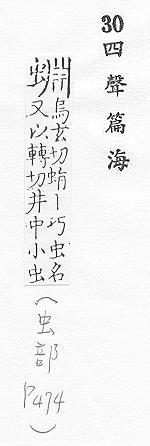 30 四聲篇海
烏玄切蜎丨巧虫名
又以轉切井中小虫
(虫部 P474)